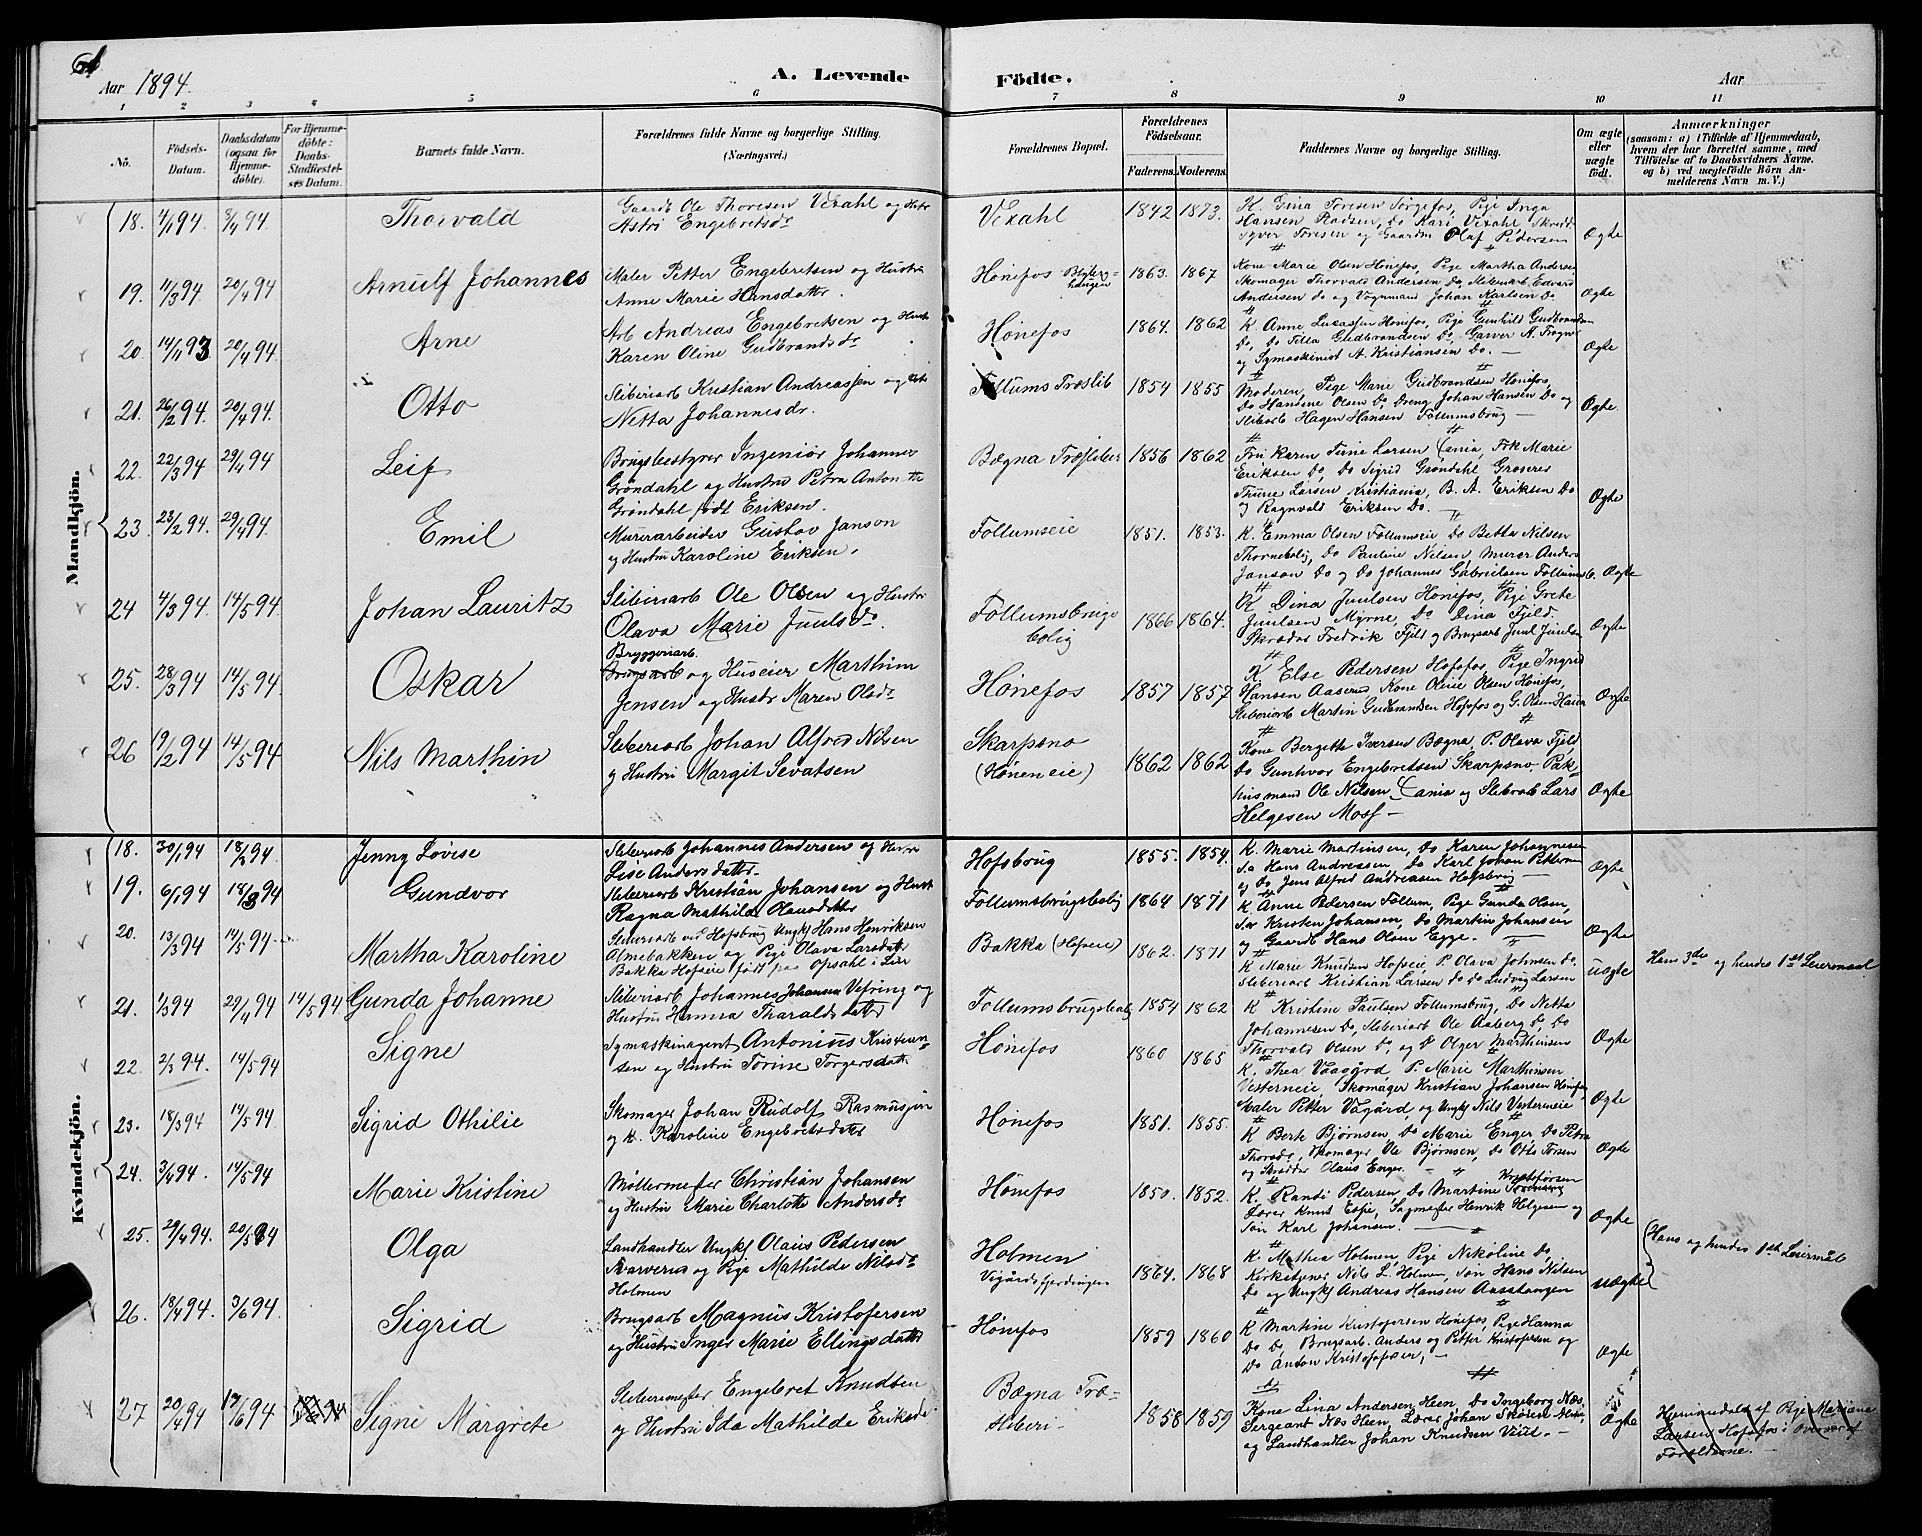 61
Aar 1894.
A. Levende Födte.
Aar
1 2 3 4 5 6 7 8 9 10 11
No.
Födsels-Datum.
Daabsdatum (ogsaa for Hjemme-döbte).
For Hjemme-döbte: Daabs-Stadfæstel-ses Datum.
Barnets fulde Navn.
Forældrenes fulde Navne og borgerlige Stilling. (Næringsvei.)
Forældrenes Bopæl.
Forældrenes Födselsaar.
Faderens. Moderens.
Faddernes Navne og borgerlige Stilling.
Om ægte eller uægte födt.
Anmærkninger
(saasom: a) i Tilfælde af Hjemmedaab, hvem der har forrettet samme, med Tilföielse af to Daabsvidners Navne, og b) ved uægtefödte Börn Anmelderens Navn m. V.)
Mandkjön.
18. 4/1 94 8/4 94. Thorvald
Gaardb Ole Thoresen Vexahl og Hstr
Astri Engebretsdr
Vexahl 1842 1873.
K. Gina Toresen Sørgefos, Pige Inga
Hansen Radsen, Do Kari Vexahl Skrædd
Syver Toresen og Gaardm Olaf Pedersen
Ægte
19. 11/3 94. 20/4 94 Arnulf Johannes
Maler Petter Engebretsen og Hustru
Anne Marie Hansdatter.
Hønefos 1863. 1867
Kone Marie Olsen Hønefos, Pige Martha Andersen
Skomager Thorvald Andersen Do, Sliberiarb Edvard
Andersen Do og Vognmand Johan Karlsen Do
Ægte
20. 14/11 93 20/4 94. Arne
Arb Andreas Engebretsen og Hustr
Karen Oline Gudbrandsdr
Hønefos 1864. 1862
K. Anne Lukassen Hønefos, Pige Gunhild Gudbrandsen
Do, Do Tilla Gudbrandsen Do, Garver A. Fragner
og Symaskinist A. Kristiansen Do. —
Ægte
21. 26/2 94 20/4 94. Otto
Sliberiarb Kristian Andreassen og Hstr
Netta Johannesdr.
Follums Træslib 1854 1855
Moderen, Pige Marie Gudbrandsen Hønefos,
Do Handine Olsen Do, Dreng Johan Hansen Do og
Slibarb Hagen Hansen Follumsbrug —
Ægte.
22. 22/3 94 29/4 94 Leif
Brugsbestyrer Ingeniør Johannes
Grøndahl og Hustru Petra Anton tte
Grøndahl født Eriksen.
Bægna Træsliberi 1856 1862
Fru Karen Tine Larsen Xania, Frk Marie
Eriksen Do, Do Sigrid Grøndahl Groserer
Trune Larsen Kristiania, B. A. Eriksen Do
og Ragnvald Eriksen Do. —
Ægte
23 23/2 94. 29/4 94. Emil
Murerarbeider Gustav Janson
og Hustru Karoline Eriksen.
Follumseie 1851. 1853.
K. Emma Olsen Follumseie Do Betta Nilsen
Thornebolig, Do Pauline Nilsen, Murer Anders
Janson Do og Do Johannes Gabrielsen Follumsb.
Ægte
24 4/3 94. 14/5 94. Johan Lauritz
Sliberiarb Ole Olsen og Hustru
Olava Marie Juulsdr.
Follumsbrugs
bolig 1866 1864.
K Dina Juulsen Hønefos, Pige Grete
Juulsen Myrne, Do Dina Fjeld
Skræder Fredrik Fjeld og Brugsarb Juul Juulsen
Ægte
25. 28/3 94 14/5 94. Oskar
Bryggeriarb.
Brugsarb og Huseier Marthin
Jensen og Hustr Maren Olsdr
Hønefos 1857 1857
K Else Pedersen Hofsfos, Pige Ingrid
Hansen Aaserud, Kone Oline Olsen Hønefos,
Sliberiarb Martin Gudbrandsen Hofsfos og G. Olsen Haug
Ægte
26 19/2 94 14/5 94 Nils Marthin
Sliberiarb Johan Alfred Nilsen
og Hustru Margit Sevatsen
Skarpsno
(Hønen eie) 1862 1862
Kone Bergitte Iversen Bægna, P. Olava Fjeld
Do Gunhvor Engebretsen Skarpsno, Pak-
husmand Ole Nilsen, Xania og Slibarb Lars
Helgesen Moss —
Ægte
Kvindekjön.
18. 30/1 94 18/2 94. Jenny Lovise
Sliberiarb Johannes Andersen og Hustru
Lise Andersdatter.
Hofsbrug 1855. 1854.
K. Marie Martinsen, Do Karen Johannesen
S.a Hans Andreassen, Do Karl Johan Pettersen
og Do Jens Alfred Andreasen Hofsbrug —
Ægte
19. 6/1 94 18/3 94 Gundvor
Sliberiarb Kristian Johansen og Hust
Ragna Mathilde Olausdatter
Follumsbrugsbolig 1864 1871
K Anne Pedersen Follum, Pige Gunda Olsen,
S.a Kristen Johansen, Do Martin Johansen
og Gaardb Hans Olsen Egge.
Ægte
20. 13/3 94 14/5 94 Martha Karoline
Sliberiarb ved Hofsbrug Ungkf Hans Henriksen
Almebakken og Pige Olava Larsdatt
Bakka Hofseie født paa Opsahl i Lier
Bakka (Hofseie) 1862. 1871
K Marie Knudsen Hofseie, P. Olava Johnsen Do,
Sliberiarb Kristian Larsen Do Do Ludvig Larsen
uægte
Hans 3die og hendes 1ste Leiermaal
21. 1/3 94 29/4 94 14/5 94 Gunda Johanne
Sliberiarb Johannes Johansen Vefring og
Hustru Hanna Tharaldsdatter
Follumsbrugsbolig 1854 1862
K Kristine Paulsen Follumsbrug, Do Netta
Johannesen Do, Sliberiarb Ole Aaberg Do, Do
Thorvald Olsen Do, og Do Olger Marthinsen
Ægte
22. 2/3 94. 14/5 94 Signe
Symaskinagent Antonius Kristian-
sen og Hustru Torine Torgersdatt
Hønefos 1860 1865
K. Thea Vaagård P. Marie Marthinsen
Vesterneie, Skomager Kristian Johansen Hønefos,
Maler Petter Vågård, og Ungkf Nils Vesterneie
Ægte
23. 18/3 94 14/5 94 Sigrid Othilie
Skomager Johan Rudolf Rasmussen
og K. Karoline Engebretsdatt
Hønefos 1851. 1855.
K Berte Bjørnsen, Do Marie Enger, Do Petra
Thorsdr, Skomager Ole Bjørnsen, Do Otto Torsen
og Skrædder Olaus Enger.
Ægte
24. 3/4 94. 14/5 94 Marie Kristine
Møllermester Christian Johansen
og Hustru Marie Charlotte Andersdr
Hønefos 1850. 1852.
K. Randi Pedersen, Do Martine Kristofersen
Lærer Knut Espe, Sagmester Henrik Helgesen og
Søn Karl Johansen.
Ægte
25. 29/4 94. 20/5 94 Olga
Landhandler Ungkf Olaus Pedersen
Svarverud og Pige Mathilde Nilsdr
Holmen
Holmen
Vigårdsfjerdingen 1864. 1868
K Mathea Holmen Pige Nikoline Do,
Kirketjener Nils L. Holmen, Søn Hans Nilsen
Do og Ungkf Andreas Hansen Aasstangen
Uægte
Hans og hendes 1ste Leiermål
26. 18/4 94. 3/6 94 Sigrid
Brugsarb Magnus Kristofersen
og Hustru Inger Marie Ellingsdatter
Hønefos 1859 1860
K Martine Kristofersen Hønefos, Pige Hanna
Do Do, Brugsarb. Anders og Petter Kristofersen og
Do Anton Kristofersen, —
Ægte
27 20/4 94 17/6 94 Signe Margrete
Sliberimester Engebret Knudsen
og Hustru Ida Mathilde Eriksdr
Bægna Træ-
sliberi 1858 1859
Kone Lina Andersen Heen, Do Ingeborg Næs,
Sergeant Næs Heen, Lærer Johan Skolen
og Landhandler Johan Knudsen
Ægte
Hjemmedøbt af Pige Mariane
Larsen Hofsfos i Overvær af
Forældrene. —